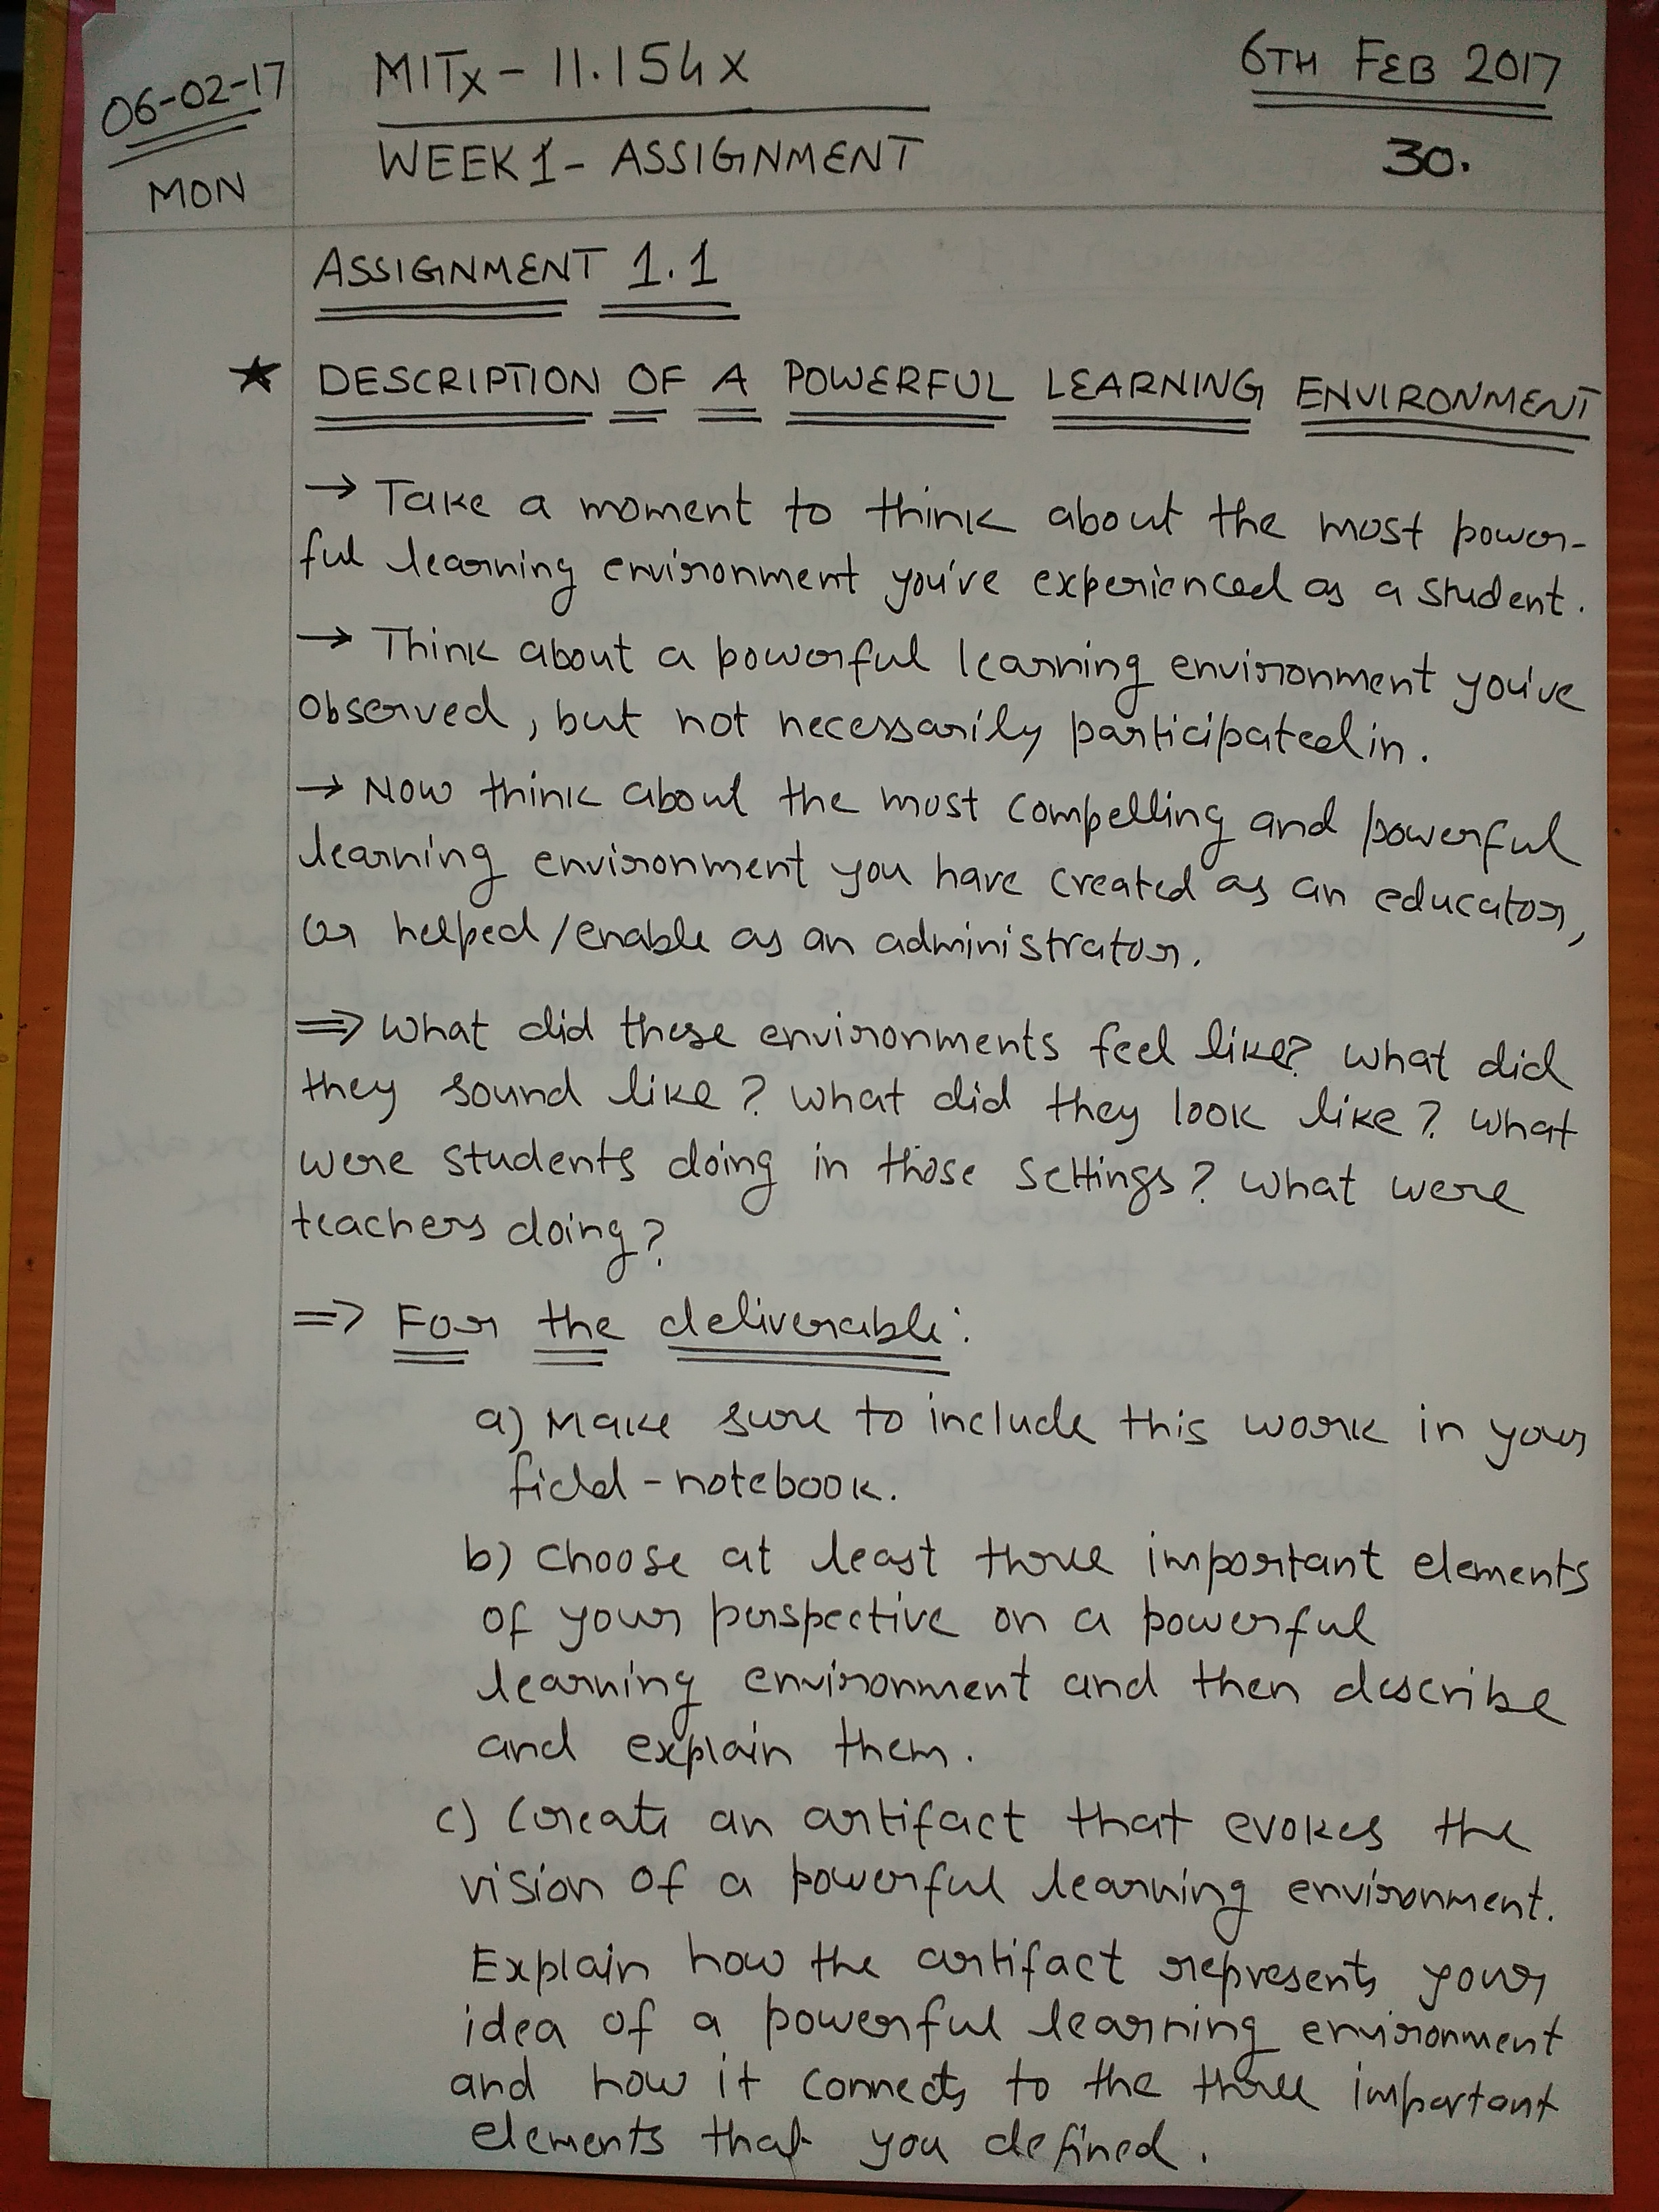 06-02-17
MON
MITx - 11.154x
WEEK 1 - ASSIGNMENT
6TH FEB 2017
30.
ASSIGNMENT 1.1
★ DESCRIPTION OF A POWERFUL LEARNING ENVIRONMENT
→ Take a moment to think about the most power-
ful learning environment you've experienced as a student.
→ Think about a powerful learning environment you've
observed, but not necessarily participated in.
→ Now think about the most compelling and powerful
learning environment you have created as an educator,
or helped/enable as an administrator.
⇒ What did these environments feel like? What did
they sound like? What did they look like? What
were students doing in those settings? What were
teachers doing?
⇒ For the deliverable:
a) Make sure to include this work in your
field-notebook.
b) Choose at least three important elements
of your perspective on a powerful
learning environment and then describe
and explain them.
c) Create an artifact that evokes the
vision of a powerful learning environment.
Explain how the artifact represents your
idea of a powerful learning environment
and how it connects to the three important
elements that you defined.